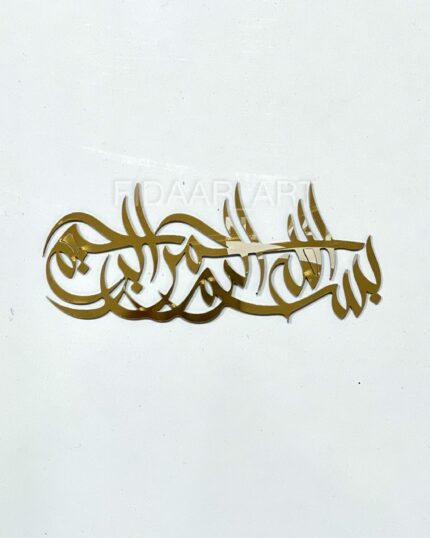 FIDAARTART
بسم الله الرحمن الرحيم